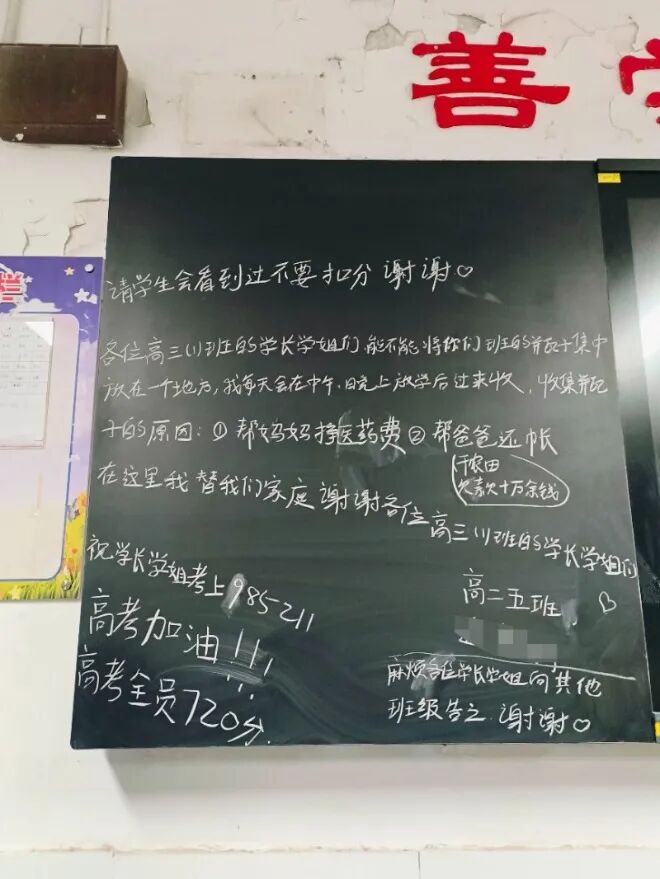 善
栏
请学生会看到过不要扣分 谢谢♡
各位高三(1)班的学长学姐们,能不能将你们班的并瓦子集中
放在一个地方,我每天会在中午、晚上放学后过来收,收集并瓦
子的原因:① 帮妈妈挣医药费② 帮爸爸还帐
干农田
欠款十万余钱
在这里我替我们家庭谢谢各位高三(1)班的学长学姐们
高二五班
♡
祝学长学姐考上985211
高考加油!!!
高考全员720分.
麻烦各位学长学姐向其他
班级告之 谢谢♡